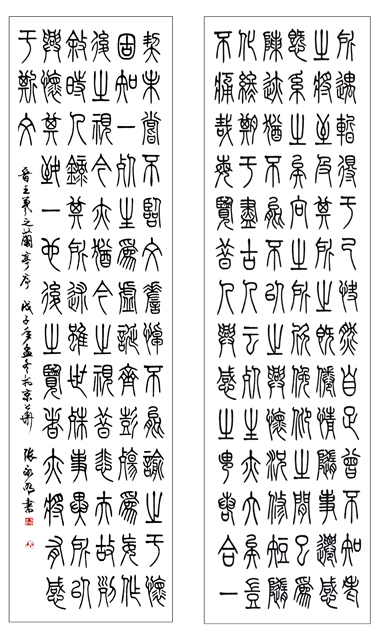 所遇暫得于己快然自足曾不知老
之將至及其所之既倦情隨事遷感
慨系之矣向之所欣俛仰之間已爲
陳迹猶不能不以之興懷況修短隨
化終期于盡古人云死生亦大矣豈
不痛哉每覽昔人興感之由若合一
契未嘗不臨文嗟悼不能諭之于懷
固知一死生爲虛誕齊彭殤爲妄作
後之視今亦猶今之視昔悲夫故列
敘時人錄其所述雖世殊事異所以
興懷其致一也後之覽者亦將有感
于斯文
晉王羲之蘭亭序 戊子年孟冬於京華